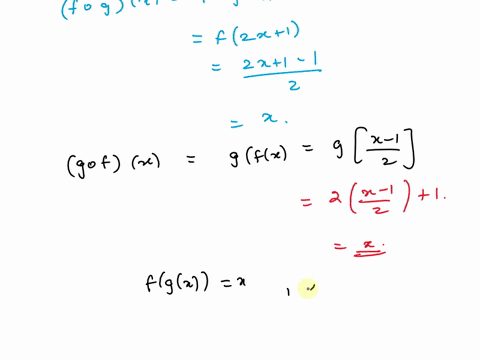 (f o g)(x)
= f(2x+1)
= 2x+1-1/2
= x.
(gof)(x) = g(f(x) = g[x-1/2]
= 2(x-1/2)+1.
= x.
f(g(x)) = x ,